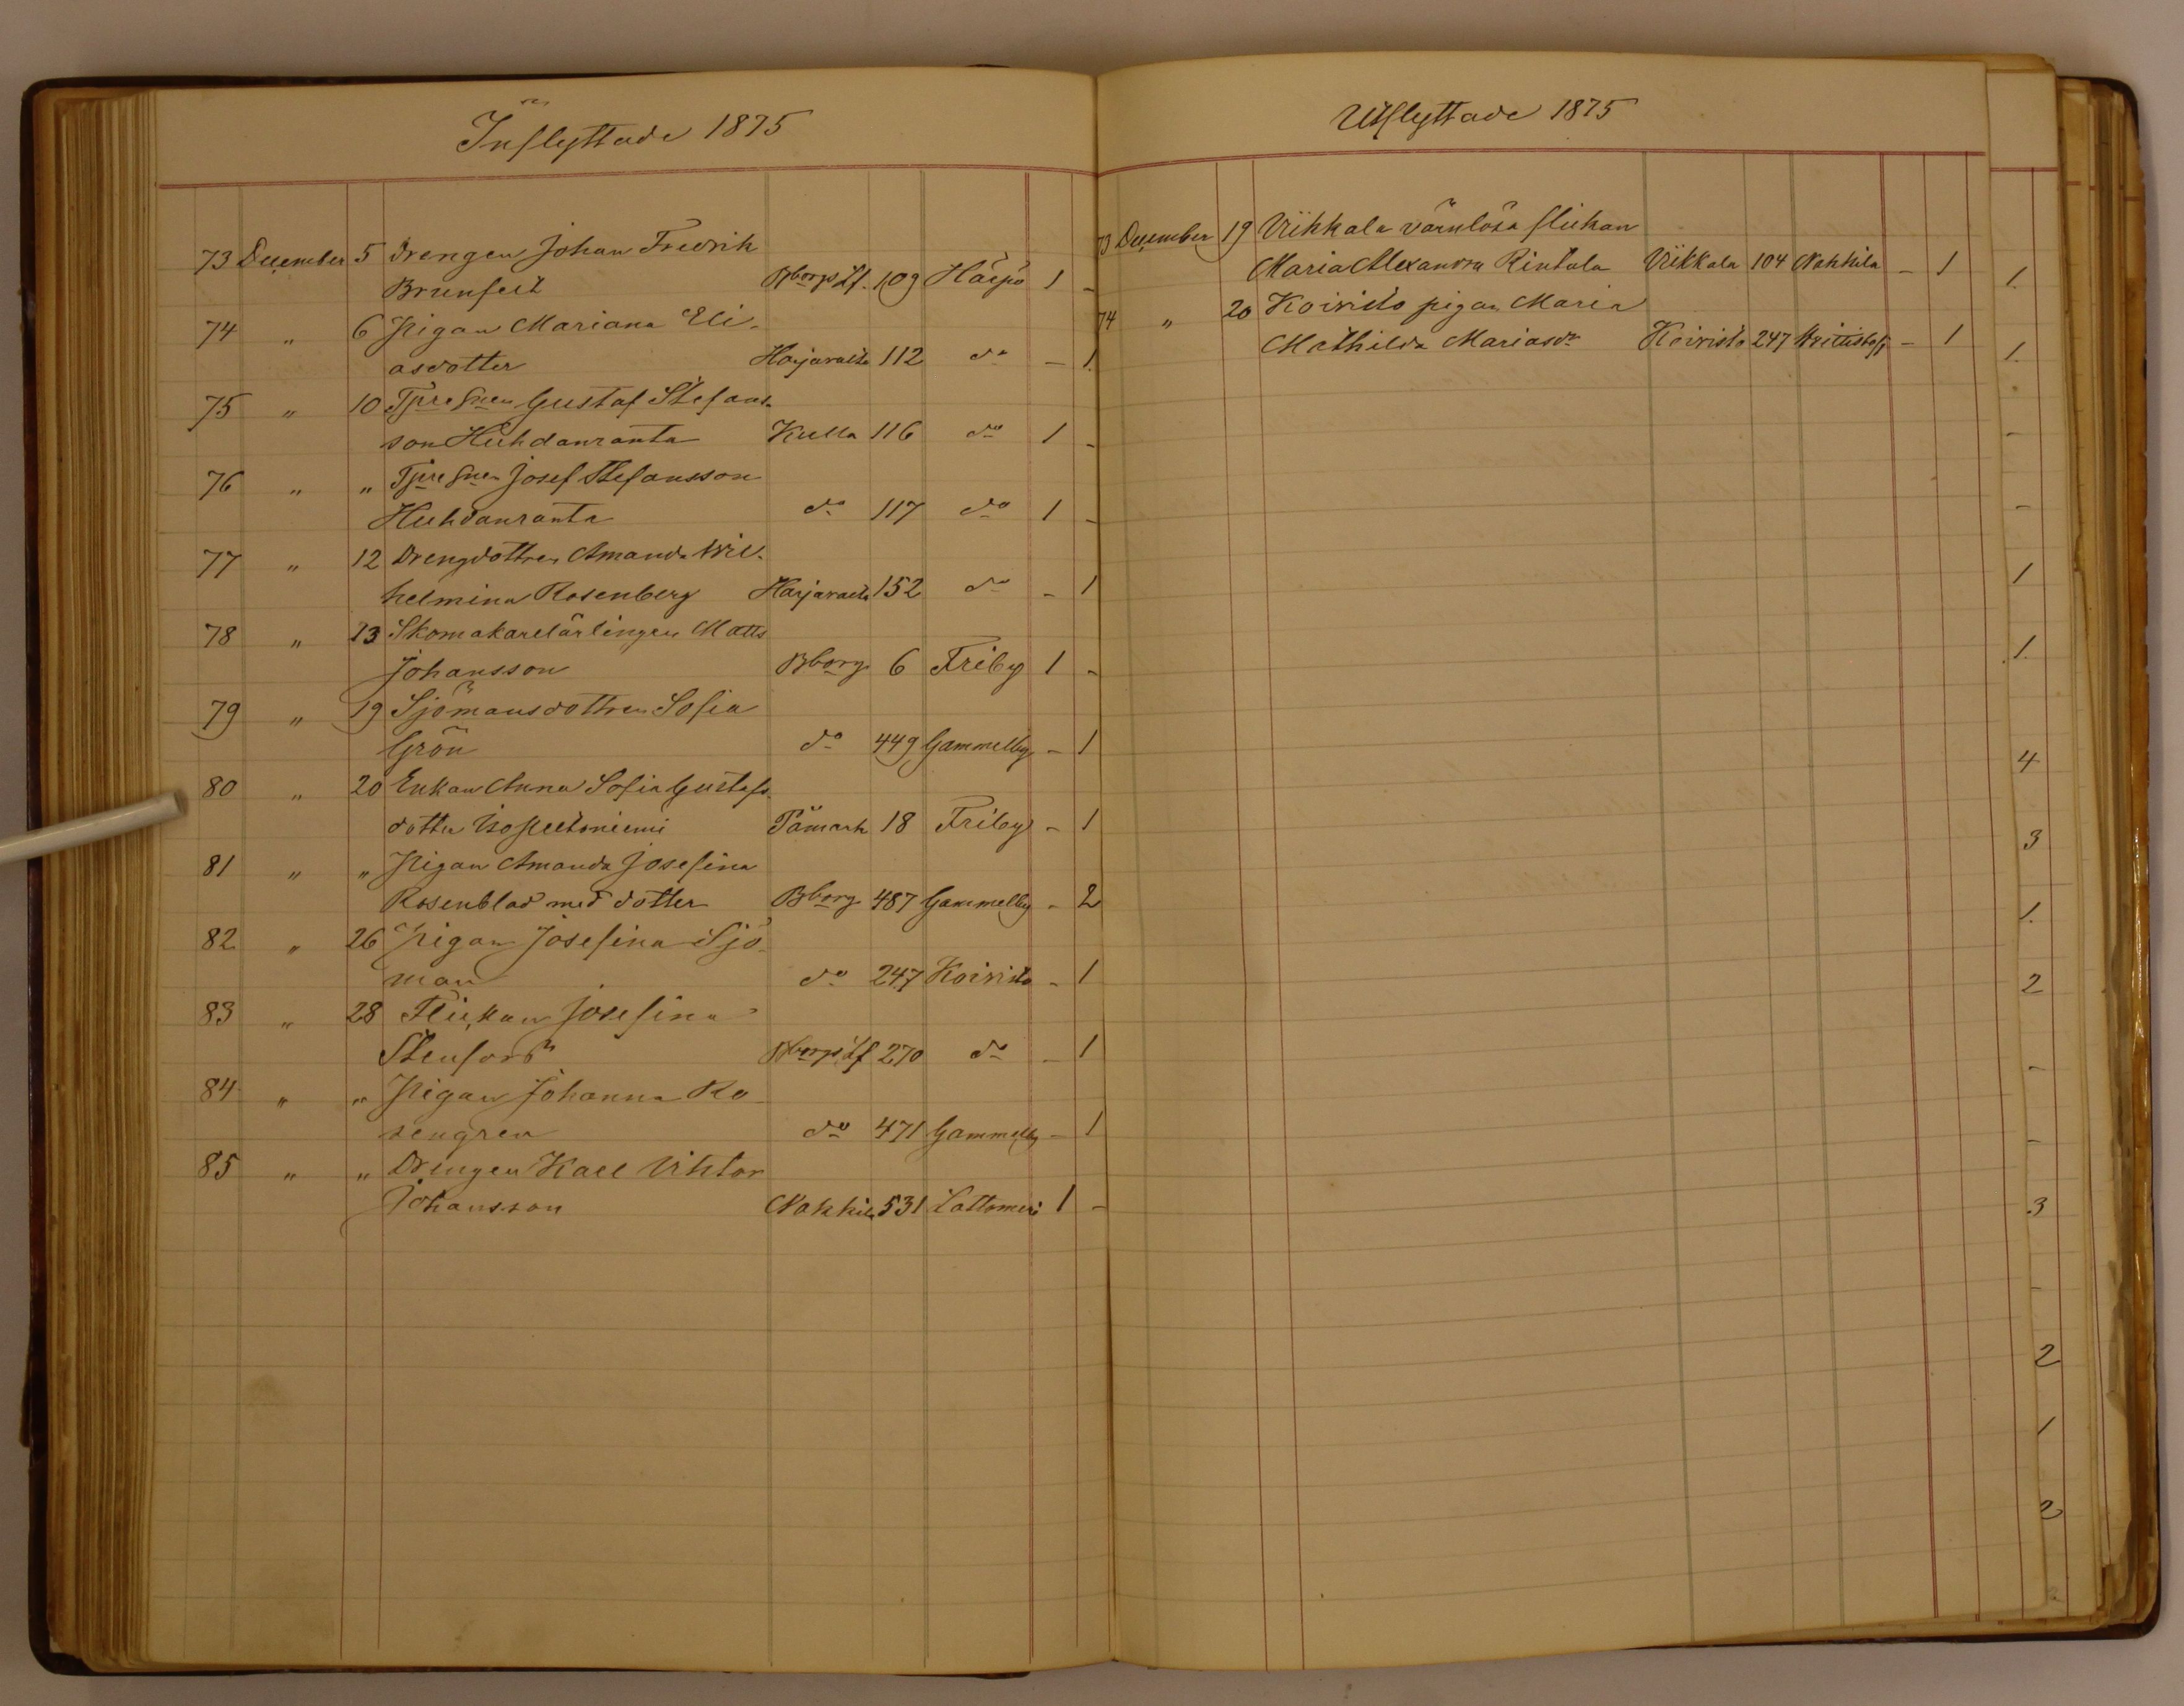 Inflyttade 1875
73 December 5 Drengen Johan Fredrik
Brunfelt Bborgs Lf. 109 Haepö 1 -
74 " 6 Pigan Mariana Eli-
asdotter Harjavalta 112 do - 1
75 " 10 Gustaf Stefans-
son Huhdanranta Kulla 116 do 1 -
76 " " Josef Stefansson
Huhdanranta do 117 do 1 -
77 " 12 Drengdottren Amanda Wil-
helmina Rosenberg Harjavalta 152 do - 1
78 " 13 Skomakarelärlingen Matts
Johansson Bborg 6 Friby 1 -
79 " 19 Sjömansdottren Sofia
Grön do 449 Gammelby - 1
80 " 20 Enkan Anna Sofia Gustafs-
dotter Påmark 18 Friby - 1
81 " " Pigan Amanda Josefina
Rosenblad med dotter Bborg 487 Gammelby - 2
82 " 26 Pigan Josefina Sjö-
man do 247 Koivisto - 1
83 " 28 Flickan Josefina
Stenfors Bborgs Lf 270 do - 1
84 " " Pigan Johanna Ro-
sengren do 471 Gammelby - 1
85 " " Drengen Karl Viktor
Johansson Nakkila 531 Lattomeri 1 -
Utflyttade 1875
73 December 19 Viikkala värnlösa flickan
Maria Alexandra Rintala Viikkala 104 Nakkila - 1
74 " 20 Koivisto pigan Maria
Mathilda Mariasdr Koivisto 247 - 1
1.
1.
-
-
1
1.
4
3
1.
2
-
-
3
-
2
1
2